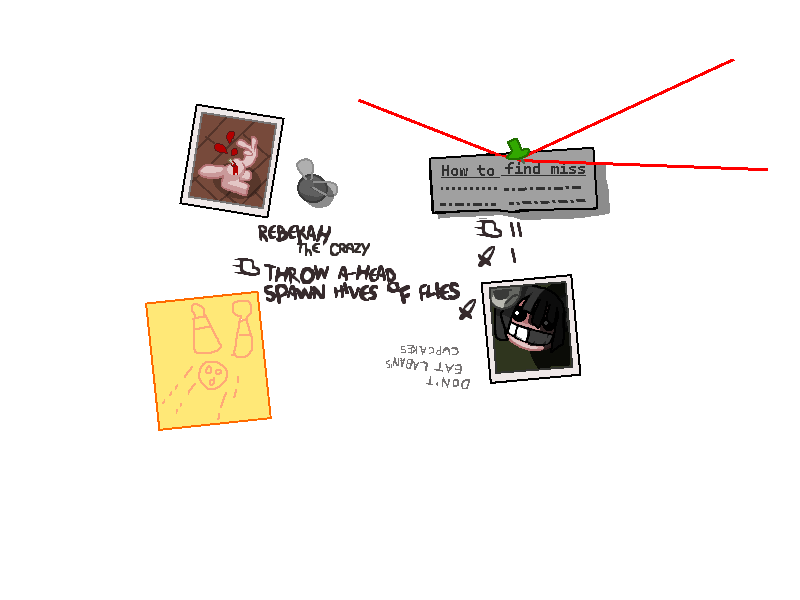 How to find miss
II
I
REBEKAH
THE CRAZY
THROW A-HEAD
SPAWN HIVES OF FLIES
DON'T
EAT LABAN'S
CUPCAKES